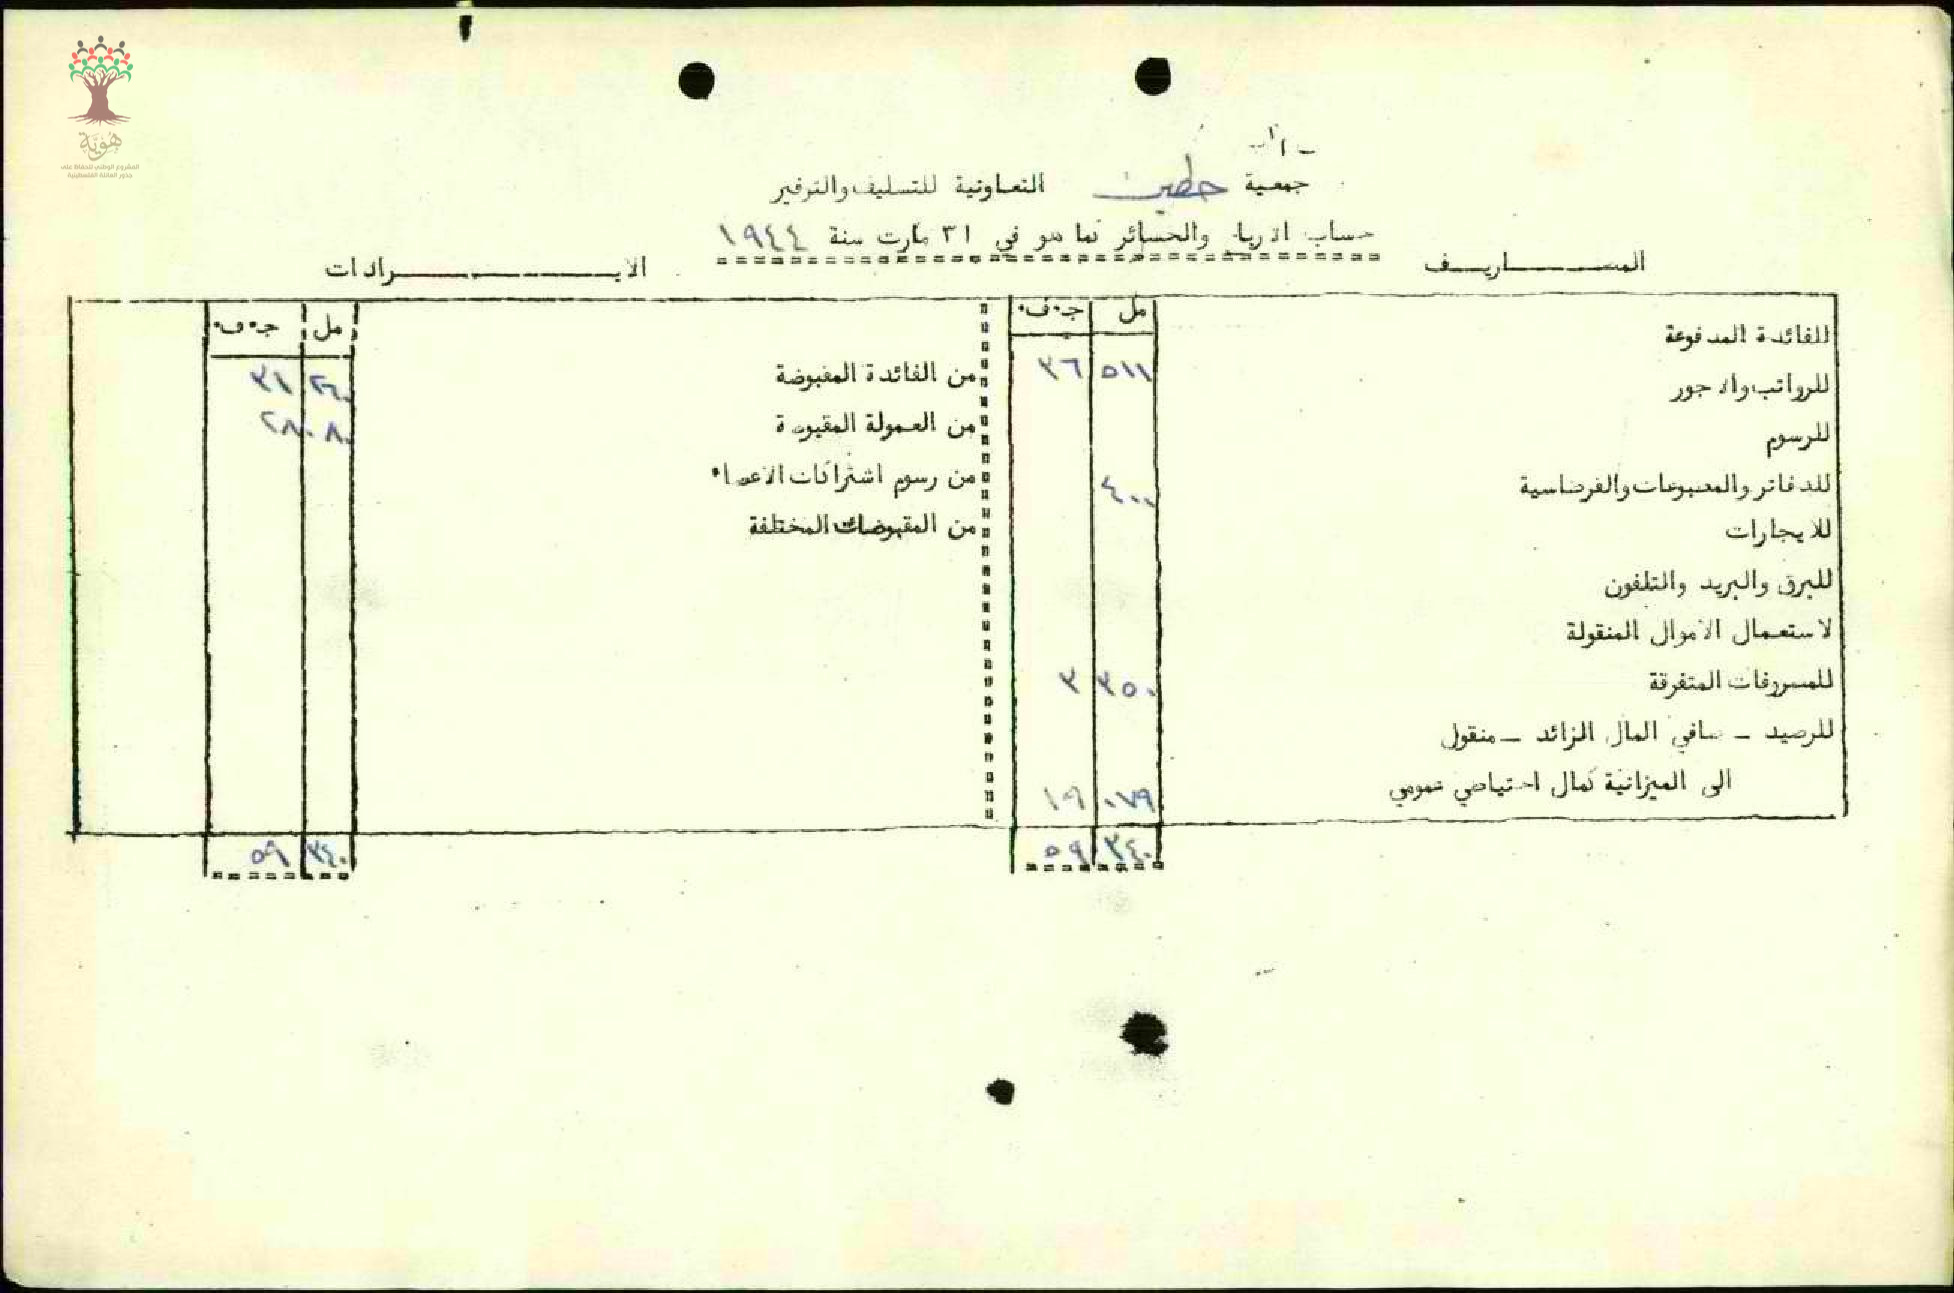 هوية
المشروع الوطني للحفاظ على
جذور العائلة الفلسطينية
جمعية حطين التعاونية للتسليف والتوفير
حساب الارباح والخسائر كما هو في ٣١ مارت سنة ١٩٤٤
المصاريف
مل ج.ف.
للفائدة المدفوعة
للرواتب والاجور ٥١١ ٣٦
للرسوم
للدفاتر والمطبوعات والقرطاسية ٤٠٠
للايجارات
للبرق والبريد والتلفون
لاستعمال الاموال المنقولة
للمصروفات المتفرقة ٣٥٠ ٣
للرصيد - صافي المال الزائد - منقول
الى الميزانية كمال احتياطي عمومي ٠٧٩ ١٩
٣٤٠ ٥٩
الايرادات
مل ج.ف.
من الفائدة المقبوضة ٢٦٠ ٣١
من العمولة المقبوضة ٠٨٠ ٢٨
من رسوم اشتراكات الاعضاء
من المقبوضات المختلفة
٣٤٠ ٥٩